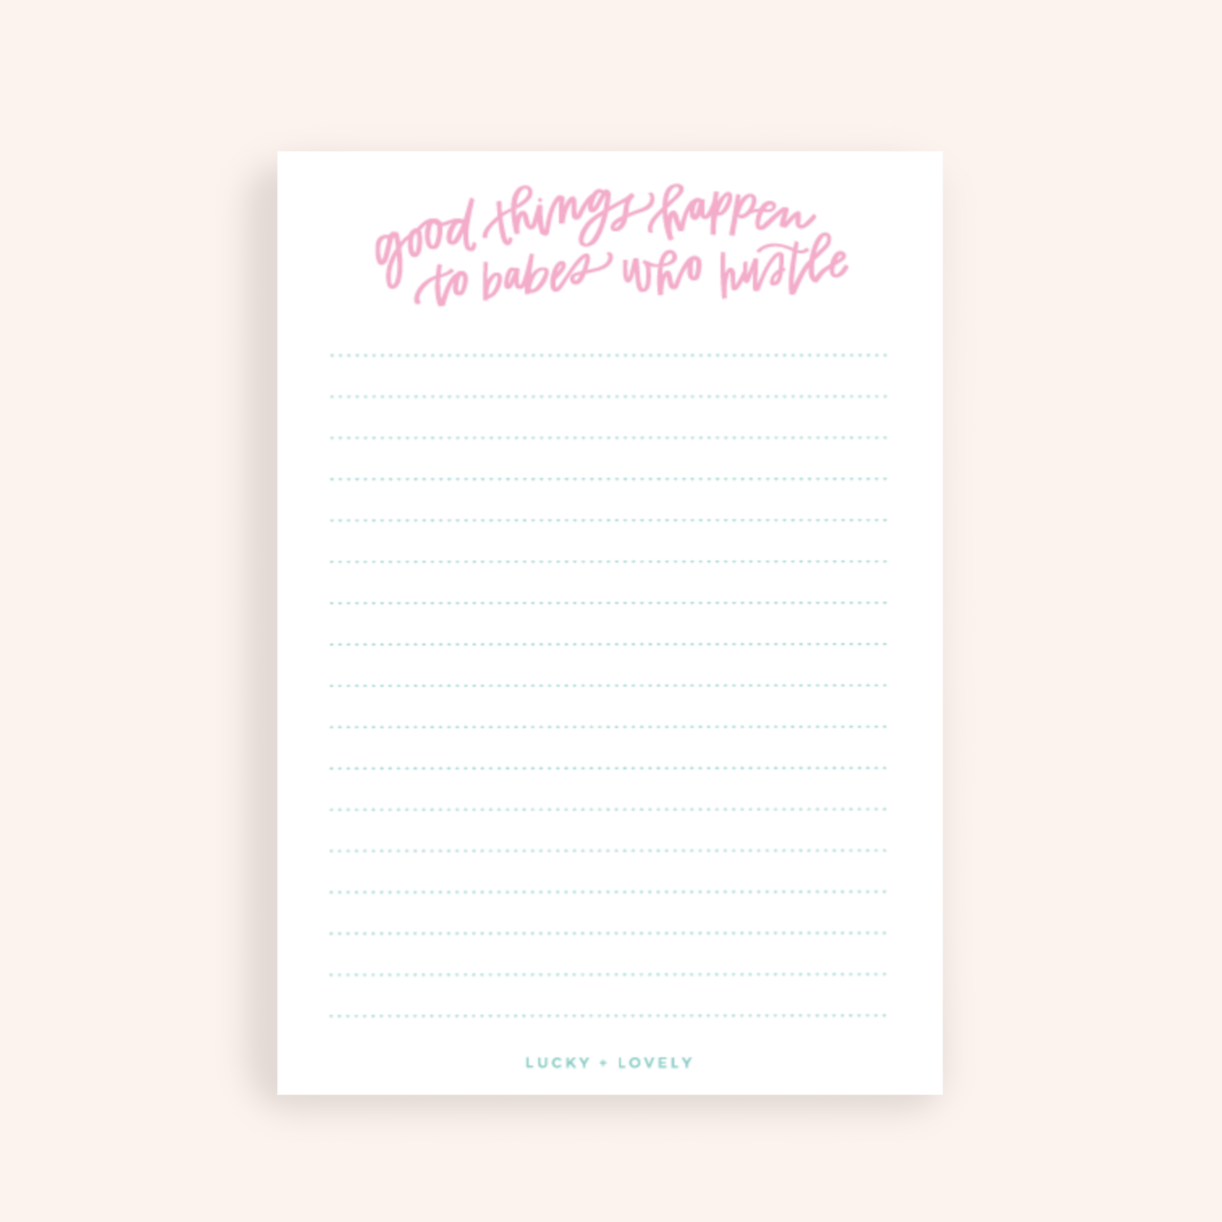 good things happen
to babes who hustle
LUCKY + LOVELY